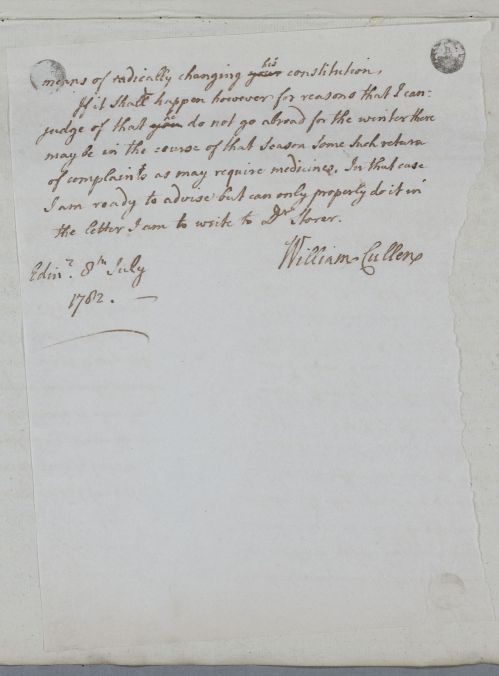 means of radically changing your his constitution,
If it shall happen however for reasons that I can:
judge of that you he do not go abroad for the winter there
may be in the course of that season some such return
of complaints as may require medicines. In that case
I am ready to advise but can only properly do it in
the letter I am to write to Dr Storer.
William Cullen
Edinr. 8th July
1782.